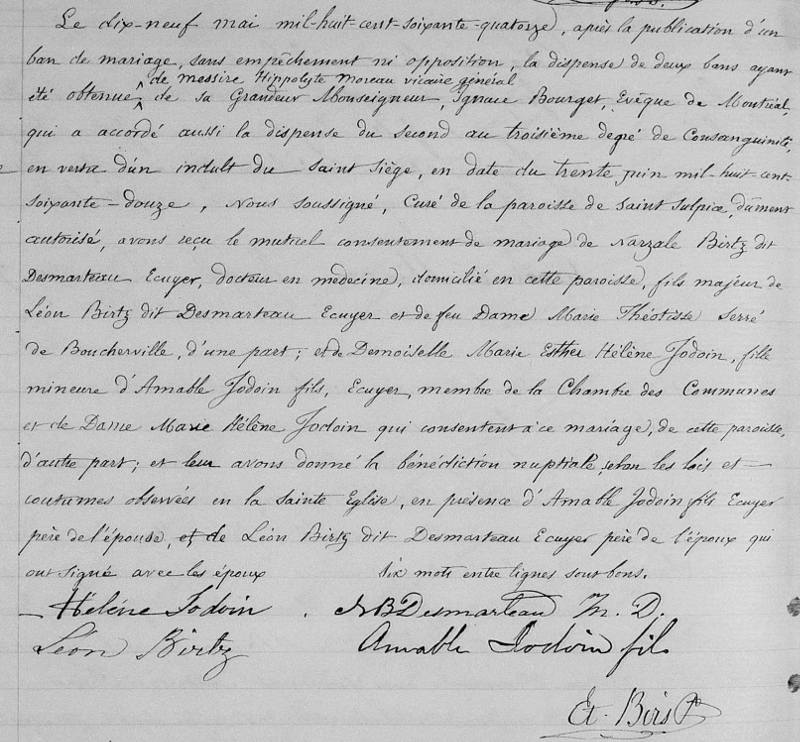 Le dix-neuf mai mil-huit-cent-soixante-quatorze, après la publication d'un
ban de mariage, sans empêchement ni opposition, la dispense de deux bans ayant
de messire Hippolyte Moreau vicaire général
été obtenue, ^ de sa Grandeur Monseigneur, Ignace Bourget, Evêque de Montréal,
qui a accordé aussi la dispense du second au troisième degré de Consanguinité,
en vertu d'un indult du Saint Siège, en date du trente juin mil-huit-cent-
soixante-douze, Nous soussigné, Curé de la paroisse de Saint Sulpice, dûment
autorisé, avons reçu le mutuel consentement de mariage de Narzale Birtz dit
Desmarteau Ecuyer, docteur en medecine, domicilié en cette paroisse, fils majeur de
Léon Birtz dit Desmarteau Ecuyer et de feu Dame Marie Théotiste Serré
de Boucherville, d'une part; et de Demoiselle Marie Esther Hélène Jodoin, fille
mineure d'Amable Jodoin fils, Ecuyer, membre de la Chambre des Communes
et de Dame Marie Hélène Jodoin qui consentent à ce mariage, de cette paroisse,
d'autre part; et leur avons donné la bénédiction nuptiale, selon les lois et
coutumes observées en la Sainte Eglise, en présence d'Amable Jodoin fils Ecuyer
père de l'épouse, et de Léon Birtz dit Desmarteau Ecuyer père de l'époux qui
ont signé avec les époux Six mots entre lignes sont bons.
Hélène Jodoin . NBDesmarteau M. D.
Léon Birtz Amable Jodoin fils
Et. Birs Ptr